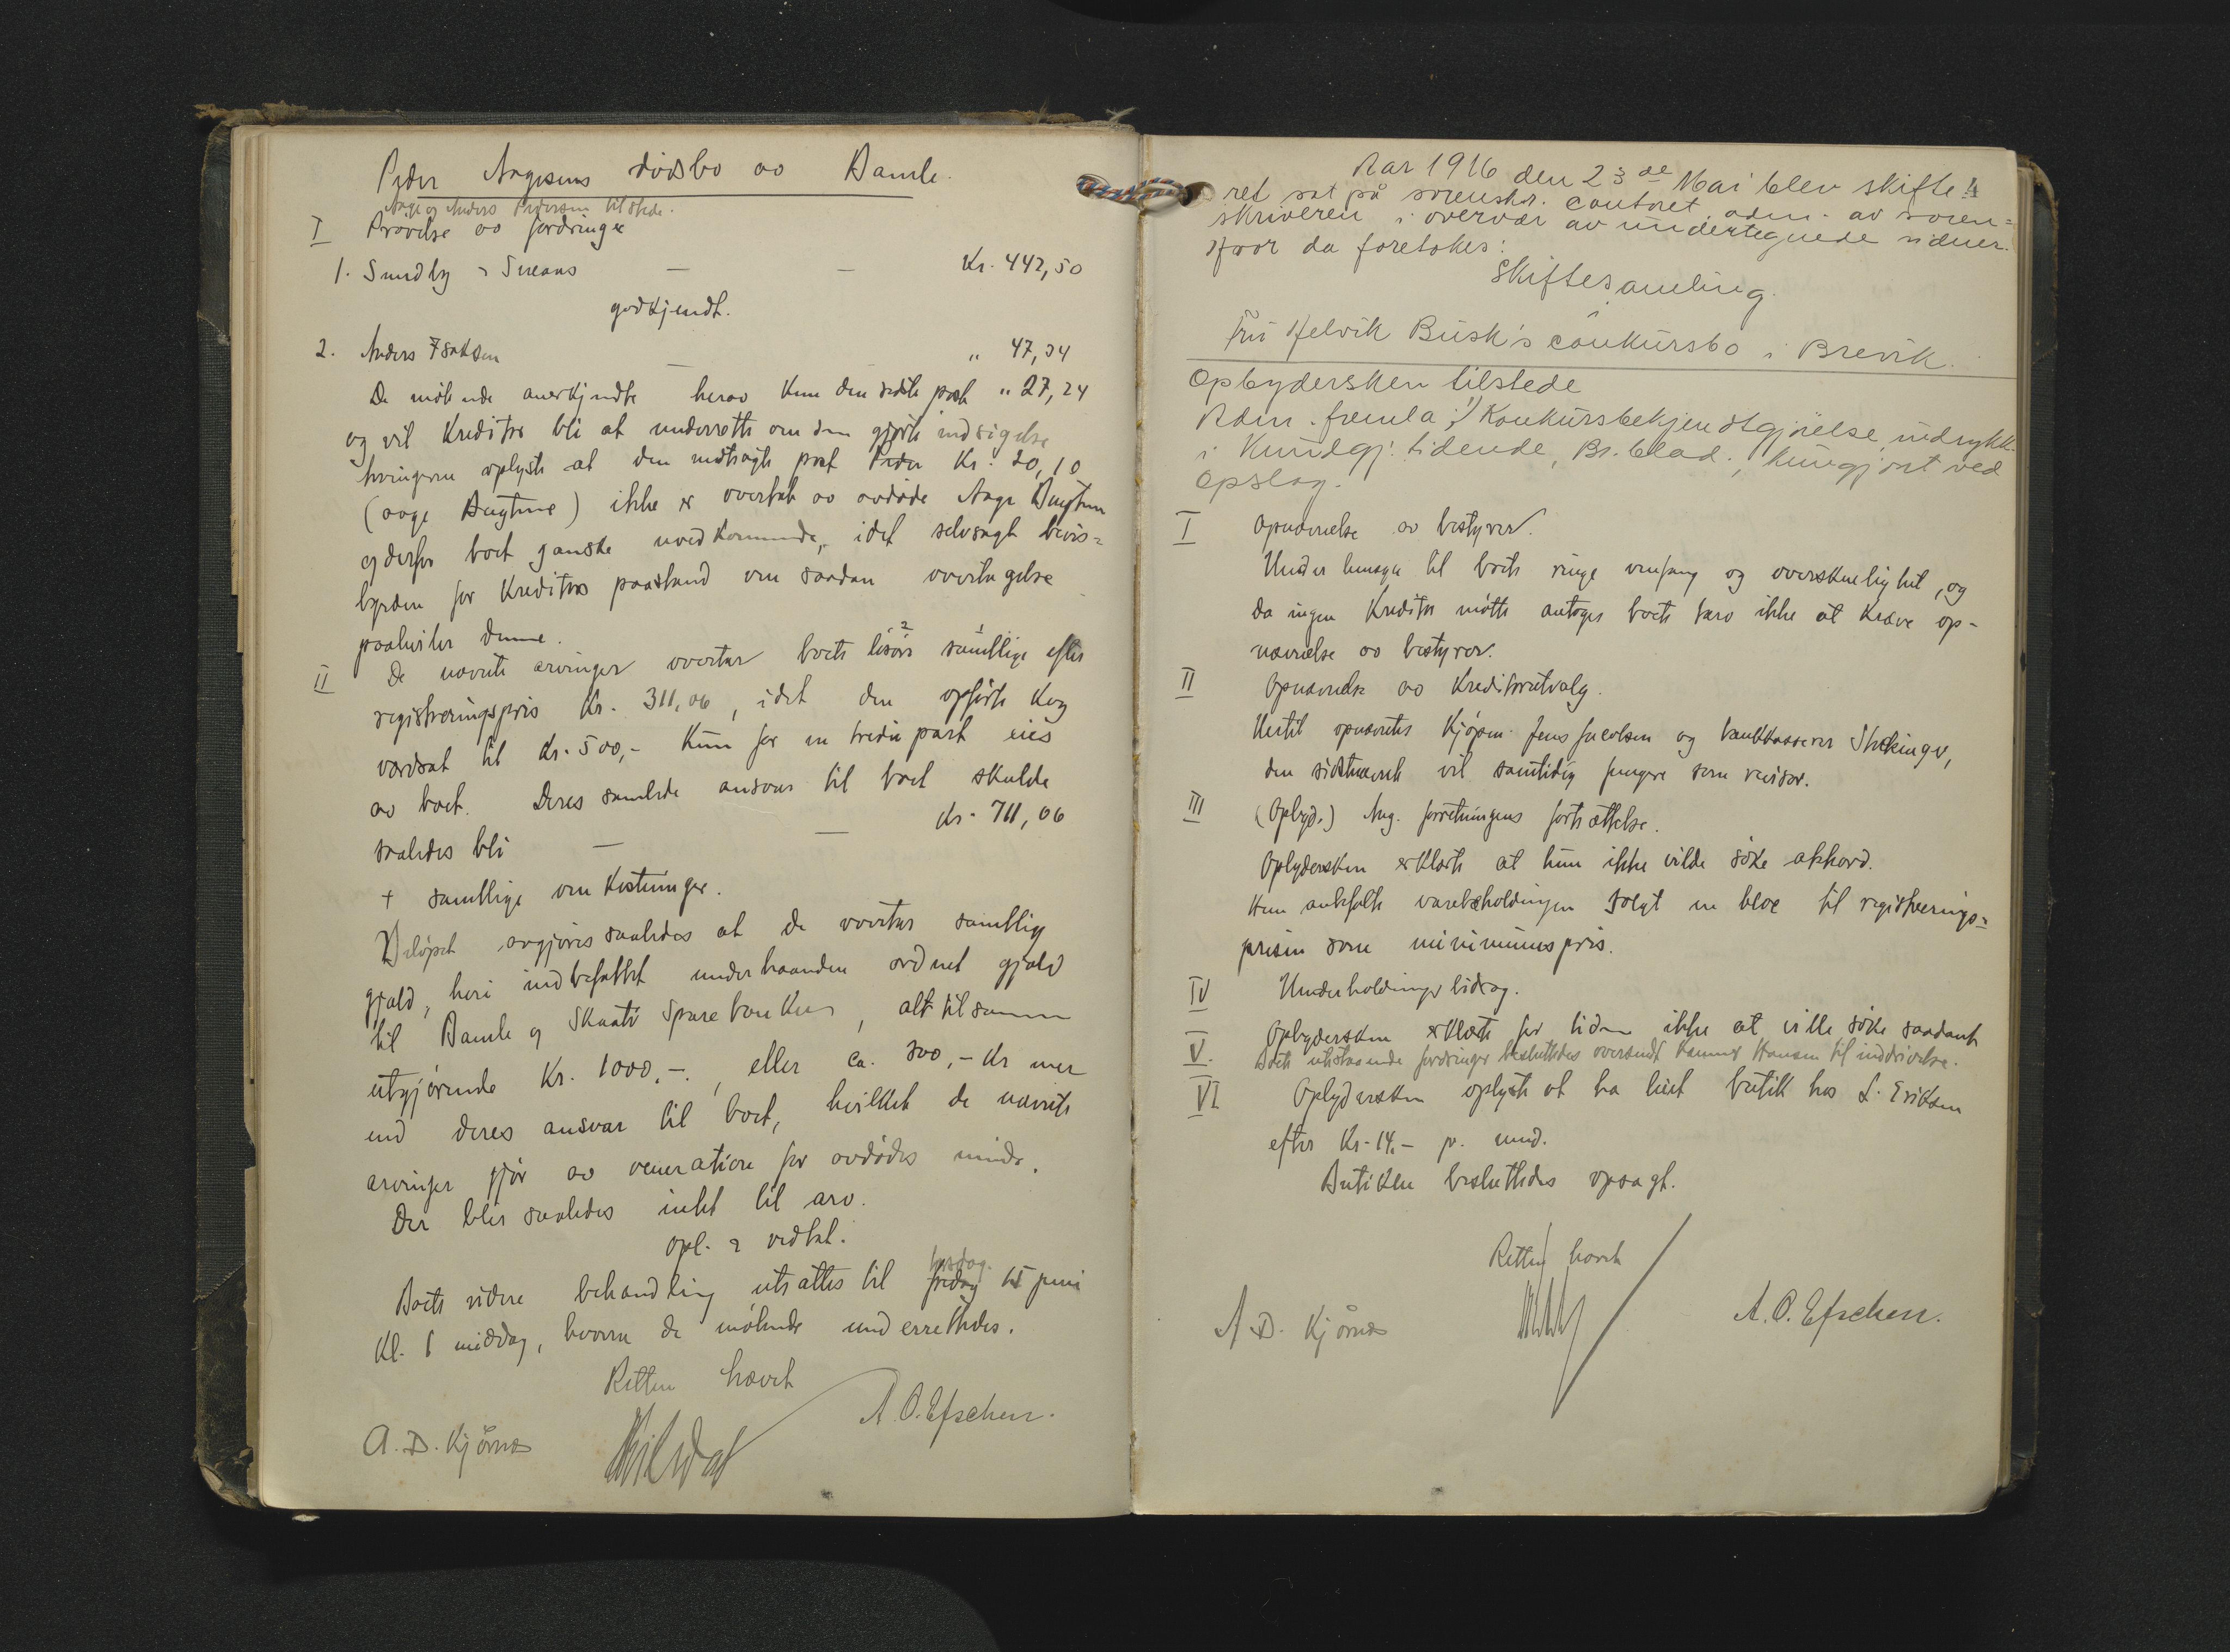 Peder Aagesens dødsbo av Bamle.
Aage og Anders Pedersen tilstede.
I Prøvelse av fordringer
1. Sundby & Sveaas — — Kr. 442,50
godkjendt.
2. Anders Isaksen — „ 47,34
De møtende anerkjendte herav kun den sidste post „ 27,24
og vil kreditor bli at underrette om den gjorte indsigelse
arvingerne oplyste at den undtagte post Peder Kr. 20,10
(aage Bugtene) ikke er overtat av avdøde Aage Bugten
og derfor boet ganske uvedkommende, idet selvsagt bevis=
byrden for kreditors paastand om saadan overtagelse
paahviler denne.
II De nævnte arvinger overtar boets løsøre samtlige efter
registreringspris Kr. 311,06, idet den opførte ko
værdsat til Kr. 500,- kun for en tredie part eies
av boet. Deres samlede ansvar til boet skulde
saaledes bli — — Kr. 711,06
+ samtlige omkostninger.
Beløpet avgjøres saaledes at de overtar samtlig
gjæld, heri indbefattet underhaanden ordnet gjæld
til Bamle og Skaatø Sparebanker, alt tilsammen
utgjørende Kr. 1000,-, eller ca. 300,- Kr mer
end deres ansvar til boet, hvilket de nævnte
arvinger gjør av veneration for avdødes minde.
Der blir saaledes intet til arv.
opl. & vedtat.
Boets videre behandling utsættes til fredag torsdag 15 juni
Kl. 1 middag, hvorom de møtende underrettedes.
Retten hævet
A.D. Kjörnes A.O. Efschen.
Aar 1916 den 23de Mai blev skifte 4
ret sat på sorenskr. contoret, adm. av soren=
skriveren i overvær av undertegnede vidner.
Hvor da foretokes:
Skiftesamling.
Fru Helvik Busk's conkursbo i Brevik.
Opbydersken tilstede
Adm. fremla: 1) Konkursbekjendtgjörelse indrykk.
i Kundgj. tidende, Br. blad., kungjort ved
opslag.
I Opnævnelse av bestyrer.
Under hensyn til boets ringe omfang og overskuelighet, og
da ingen kreditor møtte antoges boets tarv ikke at kræve op-
nævnelse av bestyrer.
II Opnævnelse av kreditorutvalg.
Hertil opnævntes kjøpm. Jens Jacobsen og bankkasserer Stokinger,
den sidstnævnte vil samtidig fungere som revisor.
III (Opbyd.) Ang. forretningens fortsættelse.
Opbydersken erklærte at hun ikke vilde søke akkord.
Hun anbefalte varebeholdningen solgt en bloc til registrerings=
prisen som minimumspris.
IV Underholdningsbidrag.
Opbydersken erklærte for tiden ikke at ville søke saadant
V. Boets utestaaende fordringer besluttedes oversendt Hansen til inddrivelse.
VI Opbydersken oplyste at ha leiet butik hos L. Eriksen
efter Kr. 14,- pr. mnd.
Butikken besluttedes opsagt.
Retten hævet
A.D. Kjörnes A.O. Efschen.